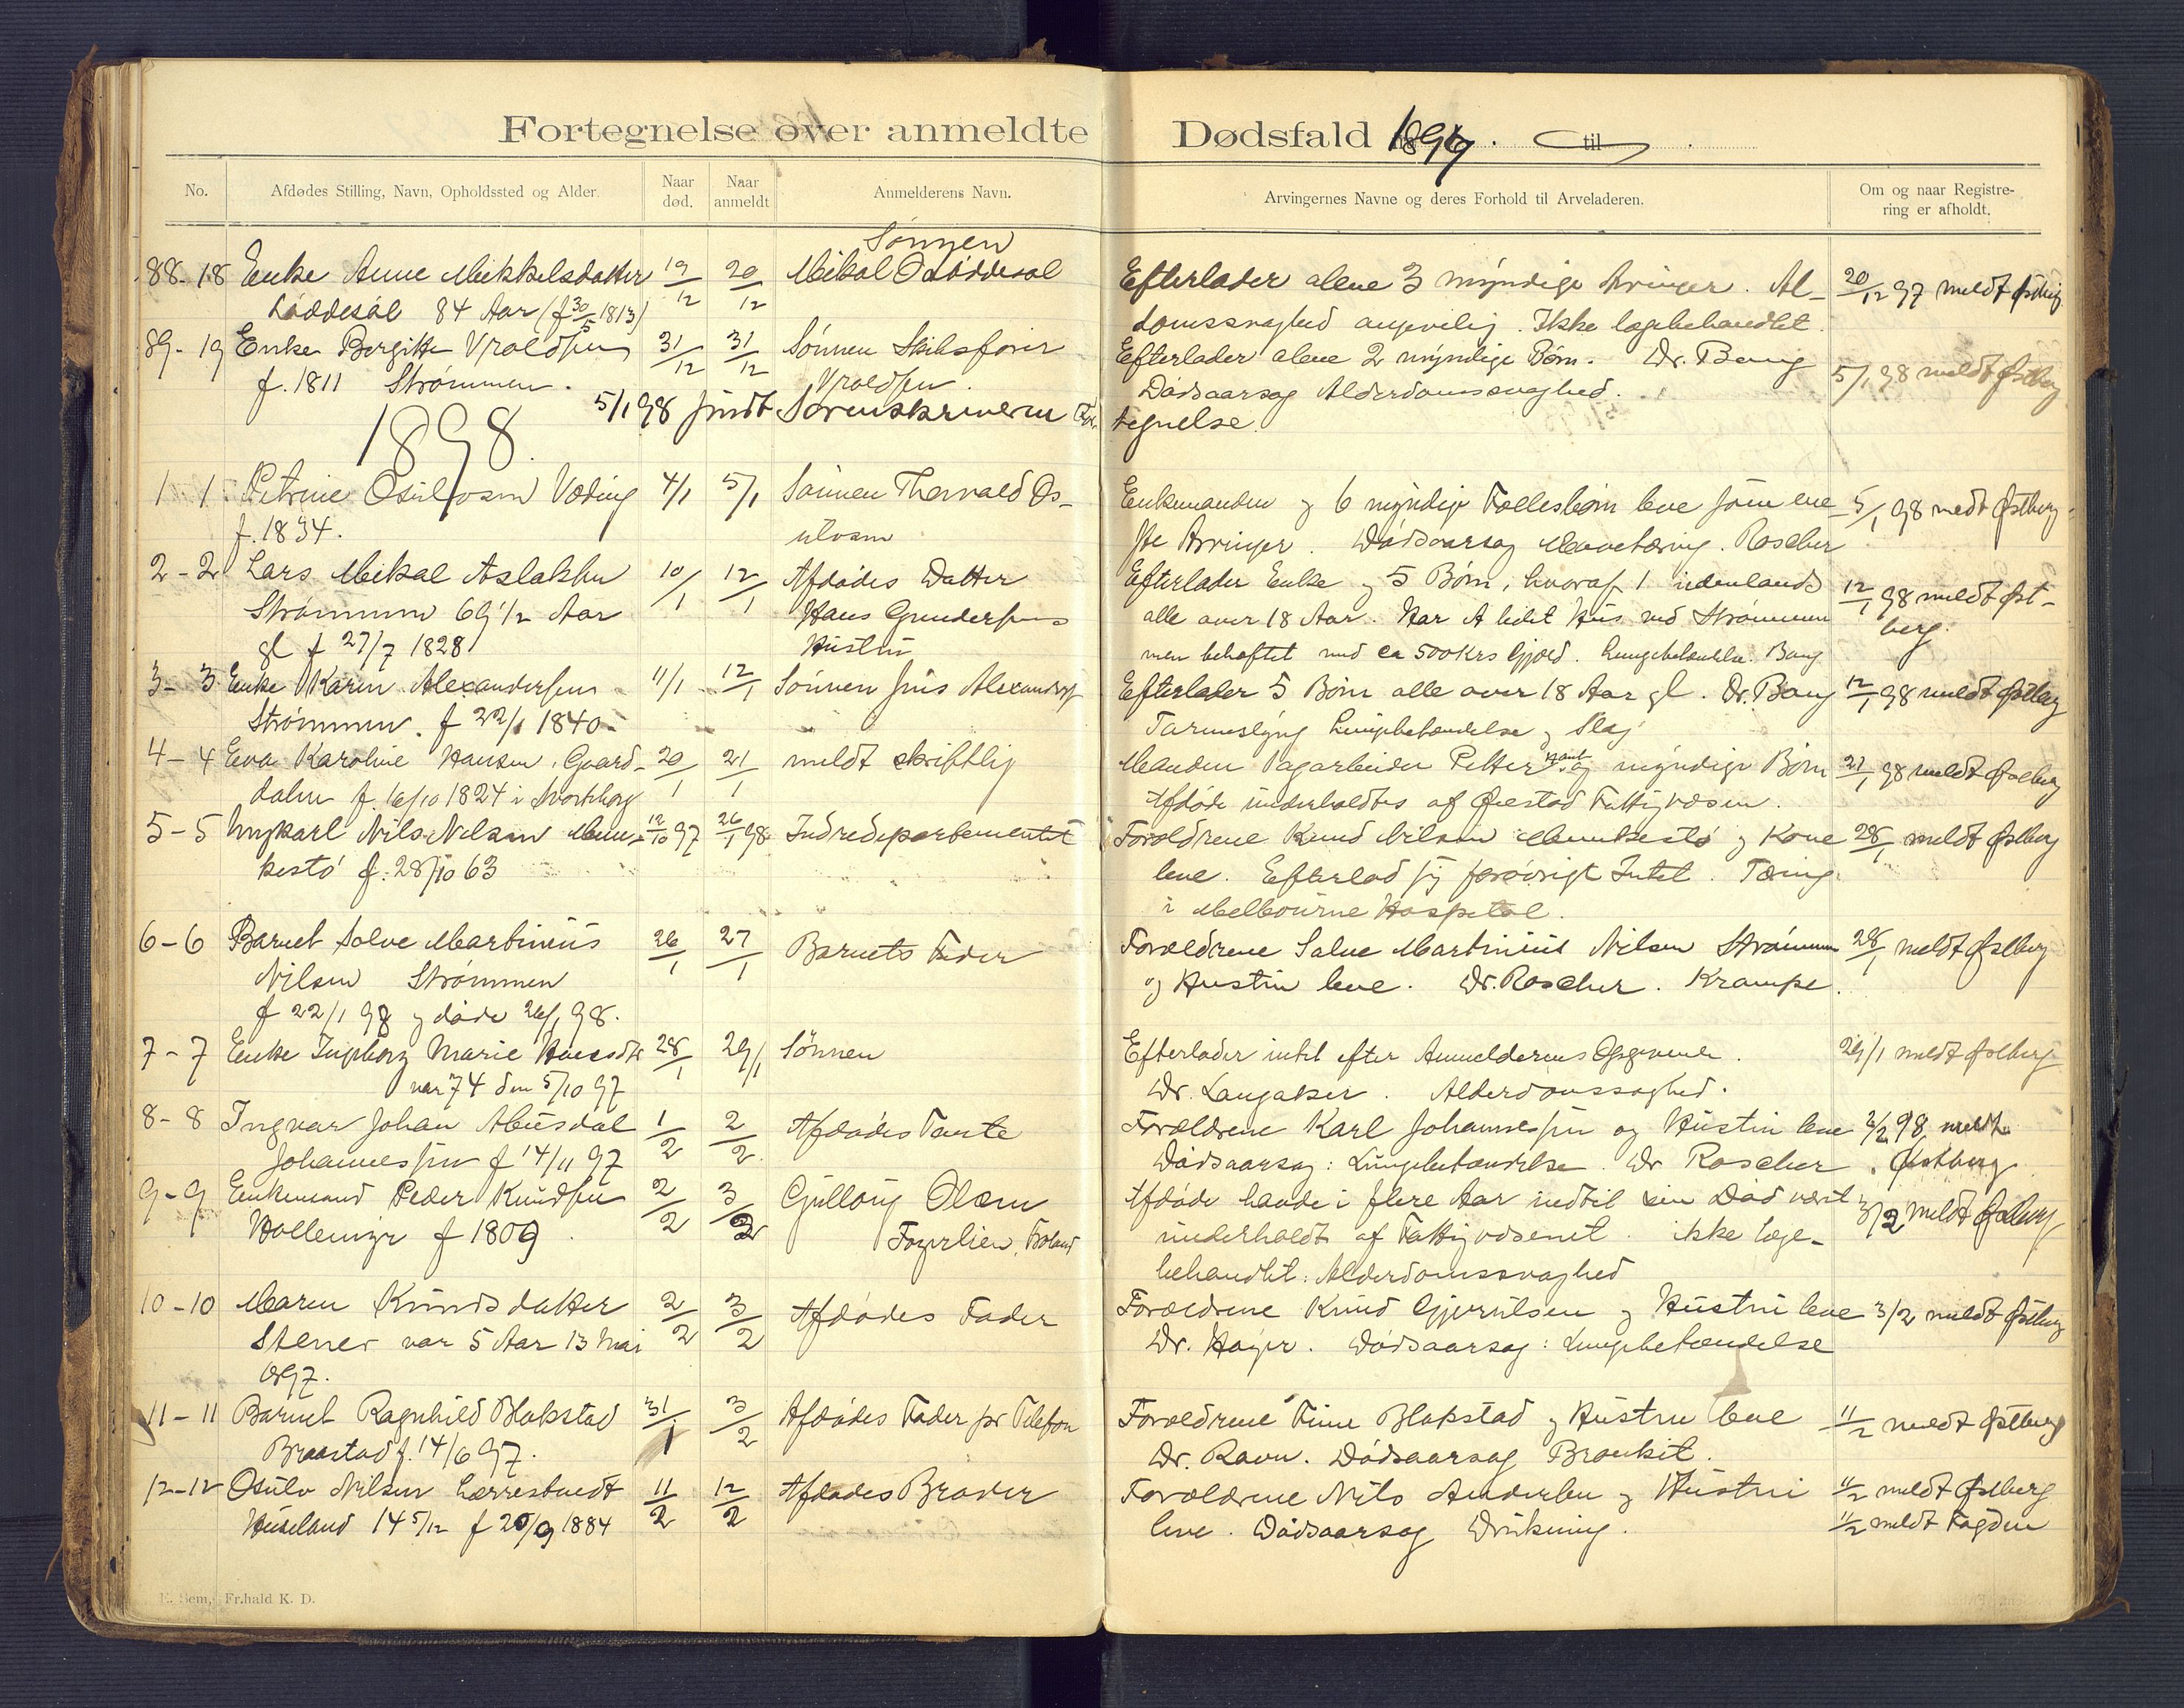 Fortegnelse over anmeldte Dødsfald 1897. til
No.
Afdødes Stilling, Navn, Opholdssted og Alder.
Naar død.
Naar anmeldt
Anmelderens Navn.
Arvingernes Navne og deres Forhold til Arveladeren.
Om og naar Registrering er afholdt.
Sønnen
88-18 Enke Anne Mikkelsdatter 19/12 20/12 Mikal O Løddesøl Efterlader alene 3 myndige Arvinger. Al- 20/12 97 meldt Østberg
Løddesøl 84 Aar (f 30/5 1813) domssvaghed angivelig. Ikke lægebehandlet.
89-19 Enke Bergitte Vroldsen 31/12 31/12 Sønnen Skibsfører Efterlader alene 2 myndige Børn. Dr. Bang 5/1 98 meldt Østberg
f. 1811 Strømmen. Vroldsen. Dødsaarsag Alderdomssvaghed.
5/1 98 sendt Sorenskriveren For-
tegnelse.
1898.
1-1 Petrine Osulvsen Væding 4/1 5/1 Sønnen Thorvald Os- Enkemanden og 6 myndige Fællesbørn leve som ene- 5/1 98 meldt Østberg
f. 1834. ulvsen ste Arvinger. Dødsaarsag Mavetæring. Roscher
2-2 Lars Mikal Aslaksen 10/1 12/1 Afdødes Datter Efterlader Enke og 5 Børn, hvoraf 1 udenlands 12/1 98 meldt Øst-
Strømmen 69 1/2 Aar Hans Gundersens alle over 18 Aar. Har et lidet Hus ved Strømmen berg.
gl f 27/7 1828 Hustru men beheftet med ca 500 Krs Gjæld. Lungebetændelse. Bang
3-3 Enke Karen Alexandersen 11/1 12/1 Sønnen Jens Alexanders Efterlader 5 Børn alle over 18 Aar gl. Dr. Bang 12/1 98 meldt Østberg
Strømmen. f 22/1 1840. Tarmeslyng Lungebetændelse og Slag
4-4 Eva Karoline Hansen, Gaard- 20/1 21/1 meldt skriftlig Manden Dagarbeider Petter samt og myndige Børn 21/1 98 meldt Østberg
dalen f. 16/10 1824 i Afdøde underholdtes af Øiestad Fattigvæsen.
5-5 Ungkarl Nils Nilsen Mun- 12/10 97 26/1 98 Indredepartementet Forældrene Knud Nilsen Munkestø og Kone 28/1 meldt Østberg
kestø f. 28/10 63 leve. Efterlod sig forøvrigt Intet. Tæring
i Melbourne Hospital.
6-6 Barnet Salve Martinius 26/1 27/1 Barnets Fader Forældrene Salve Martinius Nilsen Strømmen 28/1 meldt Østberg
Nilsen Strømmen og Hustru leve. Dr. Roscher. Krampe.
f 22/1 98 og døde 26/1 98.
7-7 Enke Ingeborg Marie Hansdtr 28/1 29/1 Sønnen Efterlader intet efter Anmelderens Opgivende. 29/1 meldt Østberg
var 74 den 5/10 97 Dr. Langaker. Alderdomssvaghed.
8-8 Ingvar Johan Abusdal 1/2 2/2 Afdødes Tante Forældrene Karl Johannessen og Hustru leve 2/2 98 meldt
Johannessen f 14/11 97 Dødsaarsag: Lungebetændelse. Dr Roscher. Østberg
9-9 Enkemand Peder Knudsen 2/2 3/2 Gjulloug Olsen Afdøde havde i flere Aar indtil sin Død været 3/2 meldt Østberg
f 1809 Froland underholdt af Fattigvæsenet. ikke læge-
behandlet: Alderdomssvaghed
10-10 Maren Knudsdatter 2/2 3/2 Afdødes Fader Forældrene Knud Gjerulsen og Hustru leve 3/2 meldt Østberg
Stener var 5 Aar 13 Mai Dr. Høyer. Dødsaarsag: Lungebetændelse
1897.
11-11 Barnet Ragnhild Blakstad 31/1 3/2 Afdødes Fader pr Telefon Forældrene Blakstad og Hustru leve 11/2 meldt Østberg
Braastad f. 14/6 97. Dr. Ravn. Dødsaarsag Bronkit.
12-12 Osulv Nilsen Lærrestvedt 11/2 12/2 Afdødes Broder Forældrene Nils Andersen og Hustru 11/2 meldt Østberg
Huseland 14 5/12 f 20/9 1884 leve. Dødsaarsag Drukning. 11/2 meldt Fogden
E. Sem, Fr.hald K. D.